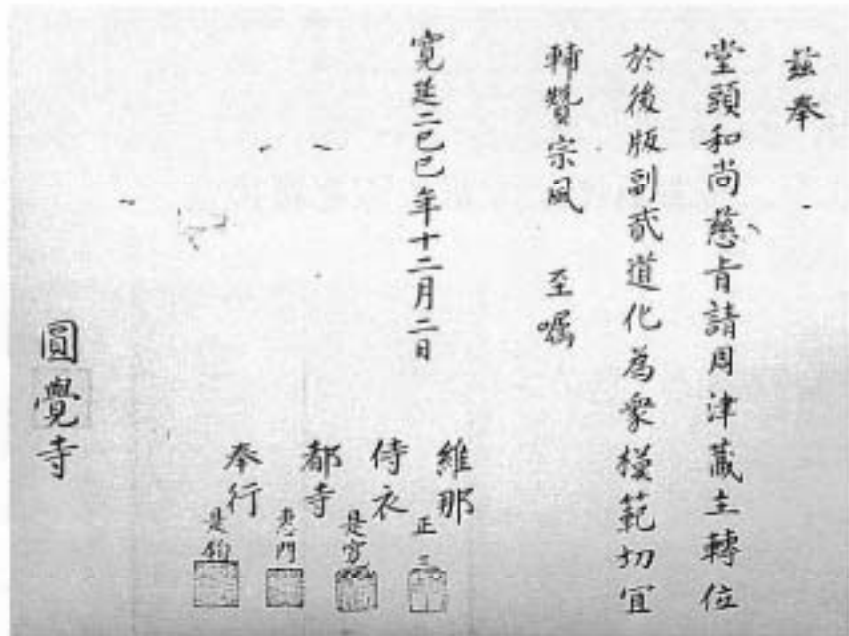 茲奉
堂頭和尚慈旨請周津藏主轉位
於後版副貳道化為衆模範切宜
輔贊宗風　至嘱
寛延二己巳年十二月二日
維那 正三
侍衣
都寺
奉行
圓覺寺